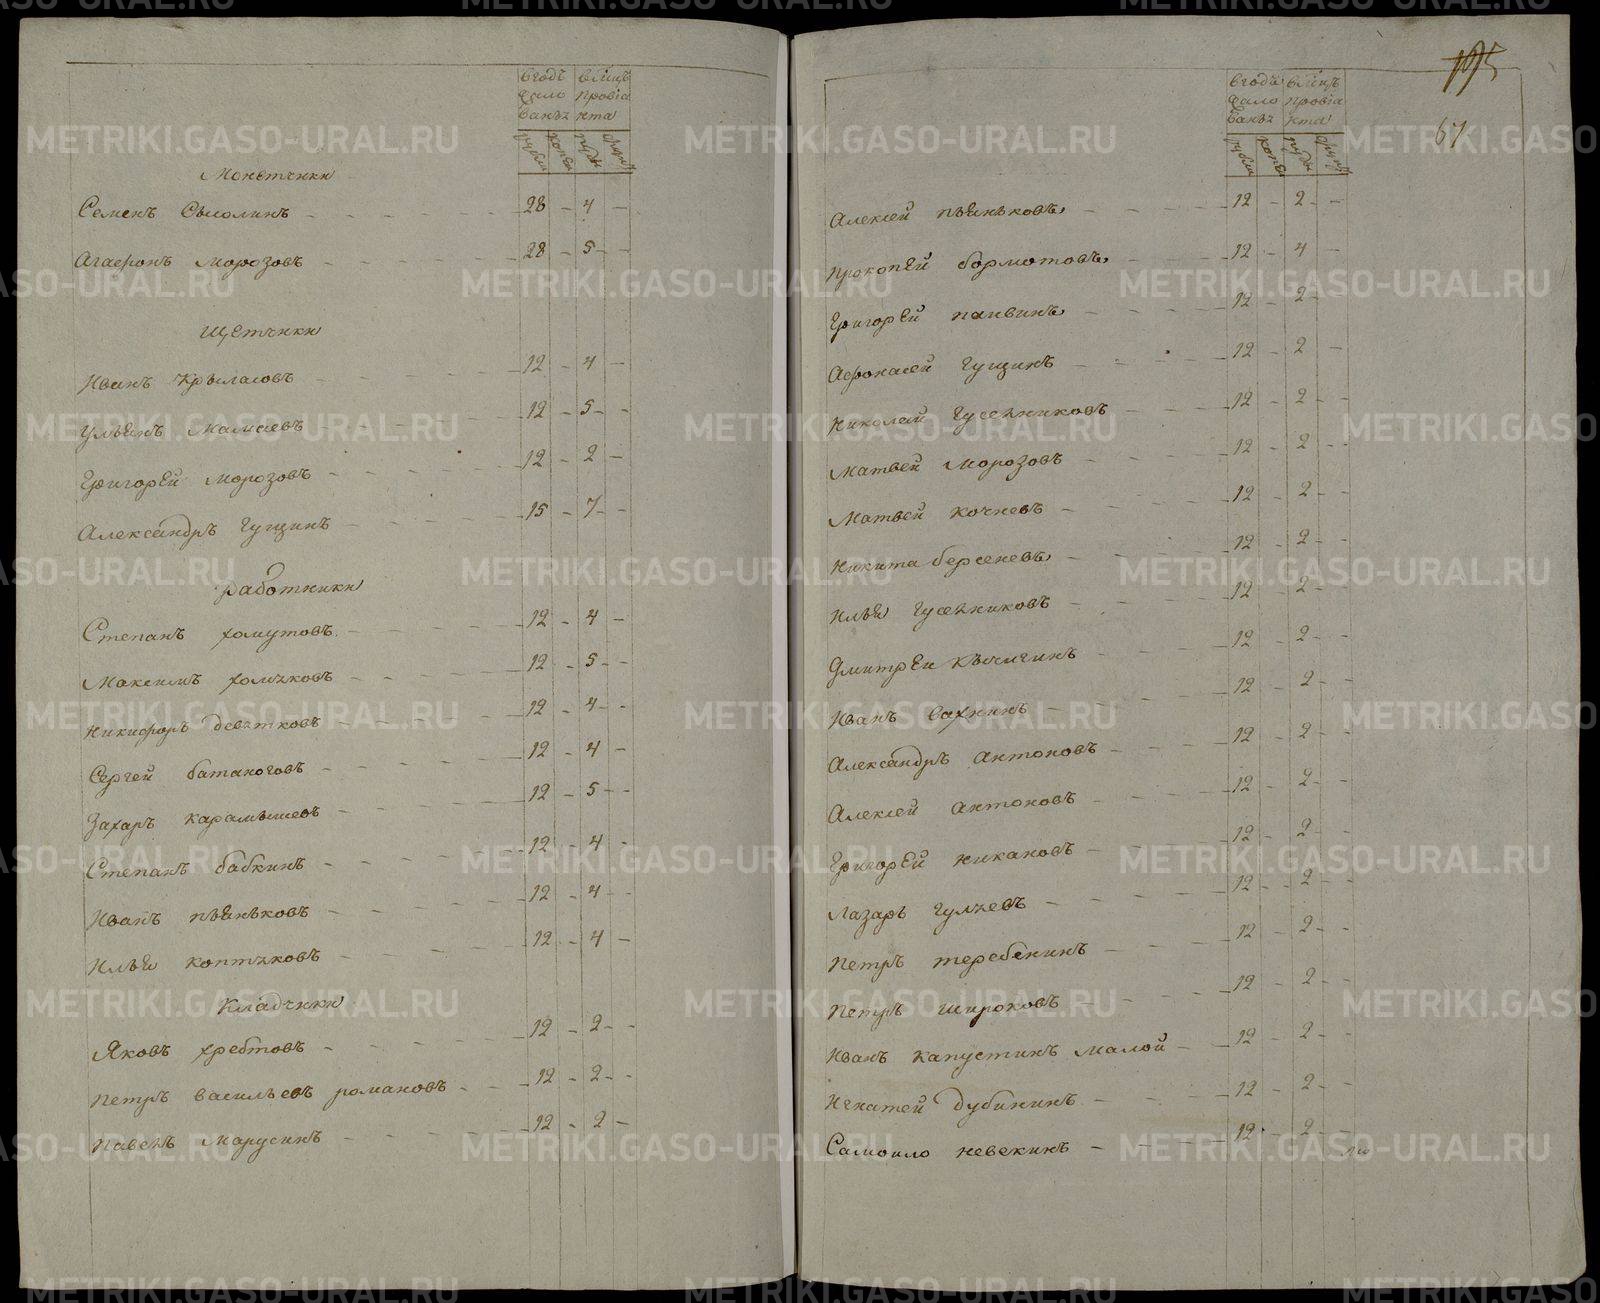 вгодъ вмѣцъ
жало провiа
ванья нта
рубли копеи пуды фунты
Монетчики
Семенъ Смолинъ 28 - 4 -
Агафонъ Морозовъ 28 - 5 -
Щетчики
Иванъ Крыласовъ 12 - 4 -
Ульянъ Мамаевъ 12 - 5 -
Григорей Морозовъ 12 - 2 -
Александръ Гущинъ 15 - 7 -
Работники
Степанъ хомутовъ 12 - 4 -
Максимъ холяковъ 12 - 5 -
Никифоръ девятковъ 12 - 4 -
Сергей батаноговъ 12 - 4 -
Захаръ карамышевъ 12 - 5 -
Степанъ бабкинъ 12 - 4 -
Иванъ пьянковъ 12 - 4 -
Илья коптяковъ 12 - 4 -
Кладчики
Яковъ хребтовъ 12 - 2 -
Петръ васильевъ романовъ 12 - 2 -
Павелъ Марусинъ 12 - 2 -
195
67
вгодъ вмѣцъ
жало провiа
ванья нта
рубли копеи пуды фунты
Алексей пьянковъ 12 - 2 -
Прокопей бормотовъ 12 - 4 -
Григорей паивинъ 12 - 2 -
Афонасей Гущинъ 12 - 2 -
Николай Гусельниковъ 12 - 2 -
Матвей Морозовъ 12 - 2 -
Матвей кочневъ 12 - 2 -
Никита берсеневъ 12 - 2 -
Илья Гусельниковъ 12 - 2 -
Дмитрей Кычигинъ 12 - 2 -
Иванъ вахнинъ 12 - 2 -
Александръ Антоновъ 12 - 2 -
Алексей Антоновъ 12 - 2 -
Григорей Никановъ 12 - 2 -
Лазарь Гуляевъ 12 - 2 -
Петръ теребенинъ 12 - 2 -
Петръ широковъ 12 - 2 -
Иванъ капустинъ малой 12 - 2 -
Игнатей Дубининъ 12 - 2 -
Самоило невекинъ 12 - 2 -
METRIKI.GASO-URAL.RU